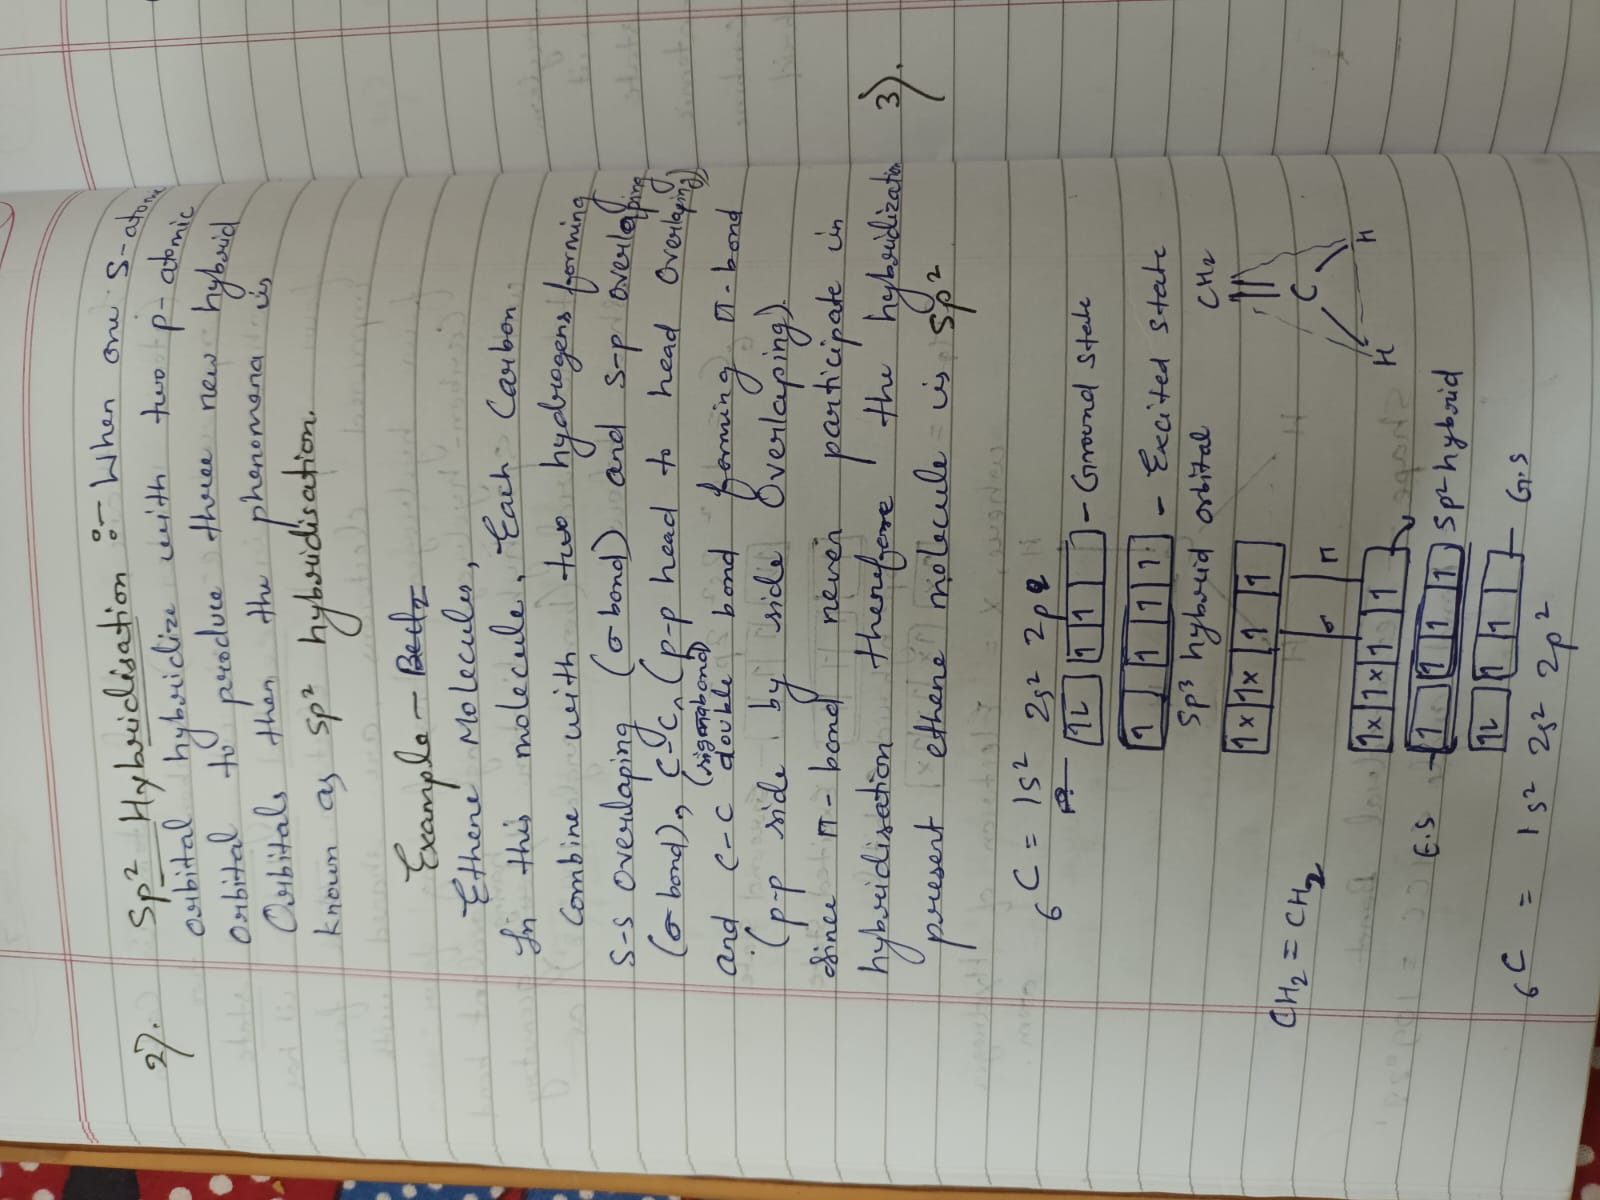 2).
Sp² Hybridisation :- When one S-atomic
orbital hybridize with two p-atomic
orbital to produce three new hybrid
Orbitals then the phenomena is
known as sp² hybridisation.
Example - Becl2
Ethene Molecules,
In this molecule, Each Carbon
Combine with two hydrogens forming
S-S overlaping (σ bond) and S-p overlaping
(σ bond), C-C, (p-p head to head overlaping)
(sigma bond)
and C-C double bond forming π-bond
(p-p side by side Overlaping).
Since π-bond never participate in
hybridisation therefore the hybridization
present ethene molecule is sp²
3).
₆C = 1s² 2s² 2p2
1L 1 1 - Ground state
1 1 1 1 - Excited state
Sp³ hybrid orbital
1x 1x 1 1
CH₂ = CH₂
σ π
1x 1x 1 1
E.S 1 1 1 1 Sp² hybrid
1L 1 1 G.S
₆C = 1s² 2s² 2p²
CH₂
C
H H